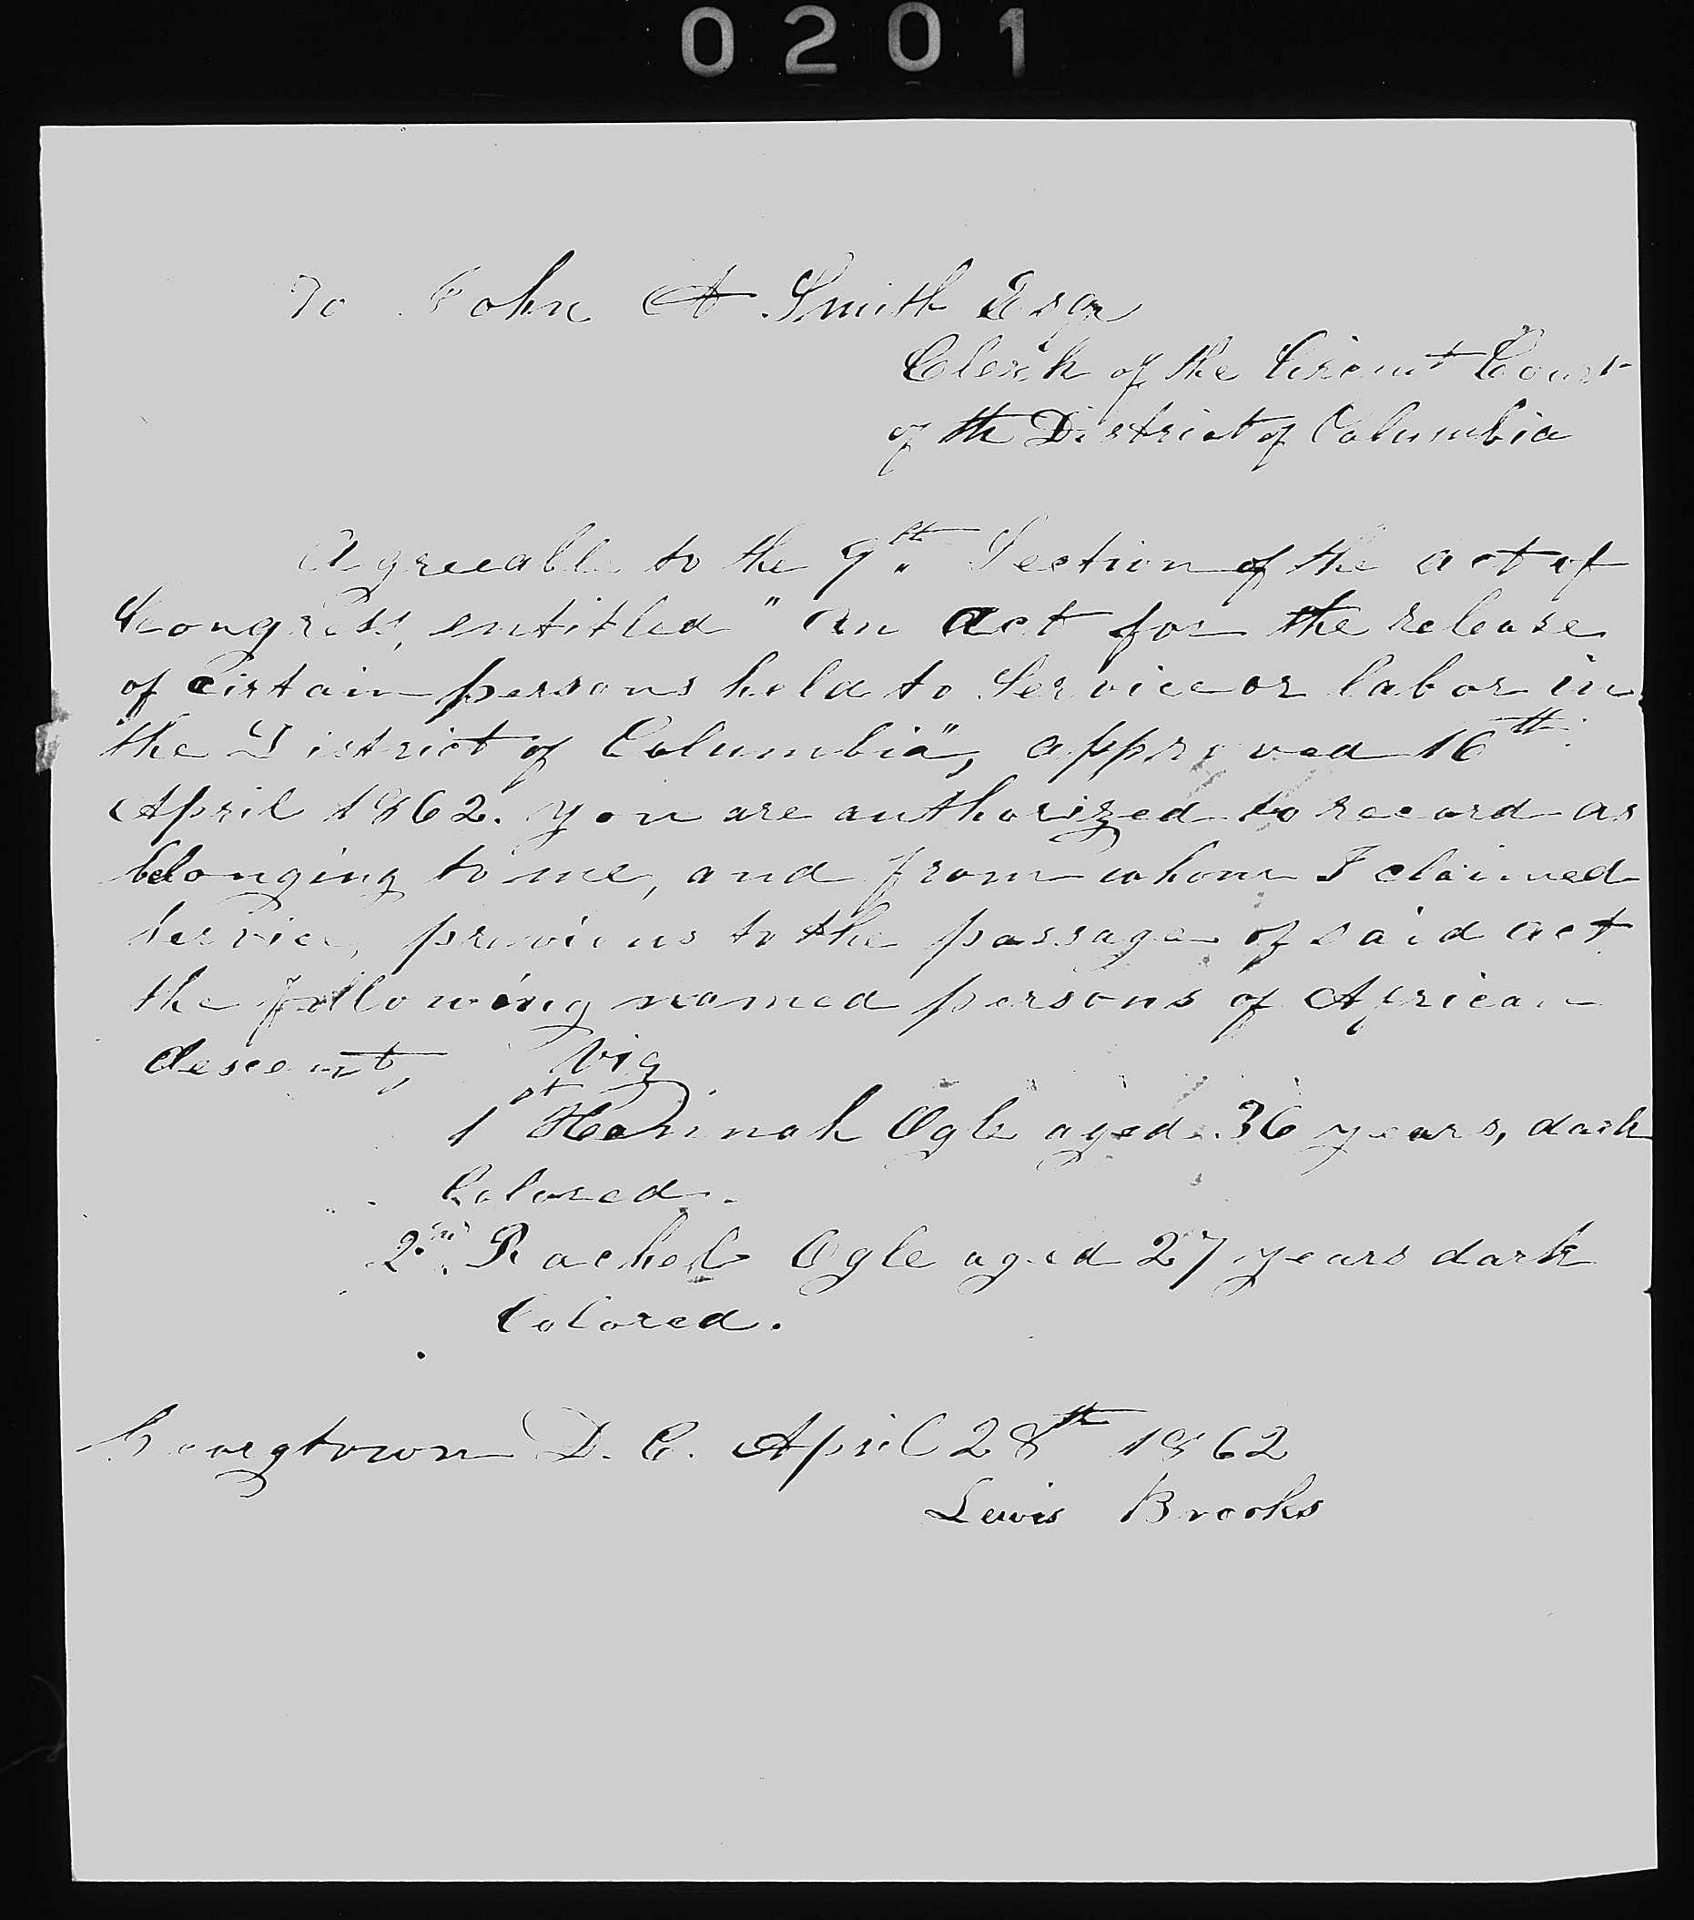 0201
To John A Smith Esqr
Clerk of the Circuit Court
of the District of Columbia
Agreeable to the 9th Section of the act of
Congress, entitled "An act for the release
of Certain persons held to Service or labor in
the District of Columbia", approved 16th
April 1862. you are authorized to record as
belonging to me, and from whom I claimed
Service, previous to the passage of said act
the following named persons of African
descent, Viz
1st Hannah Ogle aged 36 years, dark
Colored.
2nd Rachel Ogle aged 27 years dark
Colored.
Georgtown D. C. April 28th 1862
Lewis Brooks